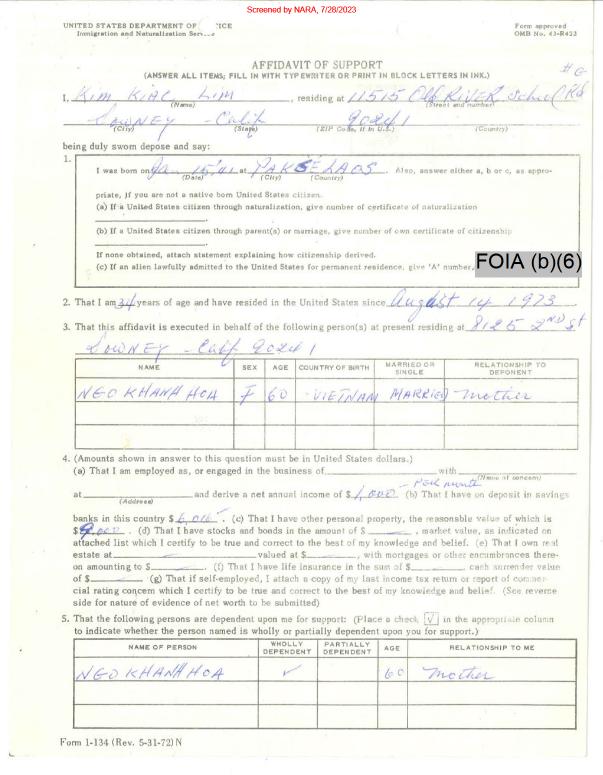 Screened by NARA, 7/28/2023
UNITED STATES DEPARTMENT OF ICE
Form approved
Immigration and Naturalization Serv
OMB No. 43-R423
AFFIDAVIT OF SUPPORT
(ANSWER ALL ITEMS; FILL IN WITH TYPEWRITER OR PRINT IN BLOCK LETTERS IN INK.)
I, KIM KIAC LIM, residing at 11515 Old RIVER School Rd
(Name) (Street and number)
DOWNEY - Calif 90241
(City) (State) (ZIP Code, if in U.S.) (Country)
being duly sworn depose and say:
1.
I was born on 15, 41 at PAKSE LAOS. Also, answer either a, b or c, as appro-
(Date) (City) (Country)
priate, if you are not a native born United States citizen.
(a) If a United States citizen through naturalization, give number of certificate of naturalization
(b) If a United States citizen through parent(s) or marriage, give number of own certificate of citizenship
If none obtained, attach statement explaining how citizenship derived.
(c) If an alien lawfully admitted to the United States for permanent residence, give 'A' number, FOIA (b)(6)
2. That I am 34 years of age and have resided in the United States since August 14 1973
3. That this affidavit is executed in behalf of the following person(s) at present residing at 8125 2ND St
DOWNEY - Calif 90241
NAME SEX AGE COUNTRY OF BIRTH MARRIED OR SINGLE RELATIONSHIP TO DEPONENT
NEO KHANH HOA F 60 - VIETNAM MARRIED Mother
4. (Amounts shown in answer to this question must be in United States dollars.)
(a) That I am employed as, or engaged in the business of with
(Name of concern)
at and derive a net annual income of $ 1,000 - month (b) That I have on deposit in savings
(Address)
banks in this country $ (c) That I have other personal property, the reasonable value of which is
$ . (d) That I have stocks and bonds in the amount of $ , market value, as indicated on
attached list which I certify to be true and correct to the best of my knowledge and belief. (e) That I own real
estate at valued at $ , with mortgages or other encumbrances there-
on amounting to $ . (f) That I have life insurance in the sum of $ cash surrender value
of $ . (g) That if self-employed, I attach a copy of my last income tax return or report of commer-
cial rating concern which I certify to be true and correct to the best of my knowledge and belief. (See reverse
side for nature of evidence of net worth to be submitted)
5. That the following persons are dependent upon me for support: (Place a check √ in the appropriate column
to indicate whether the person named is wholly or partially dependent upon you for support.)
NAME OF PERSON WHOLLY DEPENDENT PARTIALLY DEPENDENT AGE RELATIONSHIP TO ME
NEO KHANH HOA ✓ 60 Mother
Form I-134 (Rev. 5-31-72) N